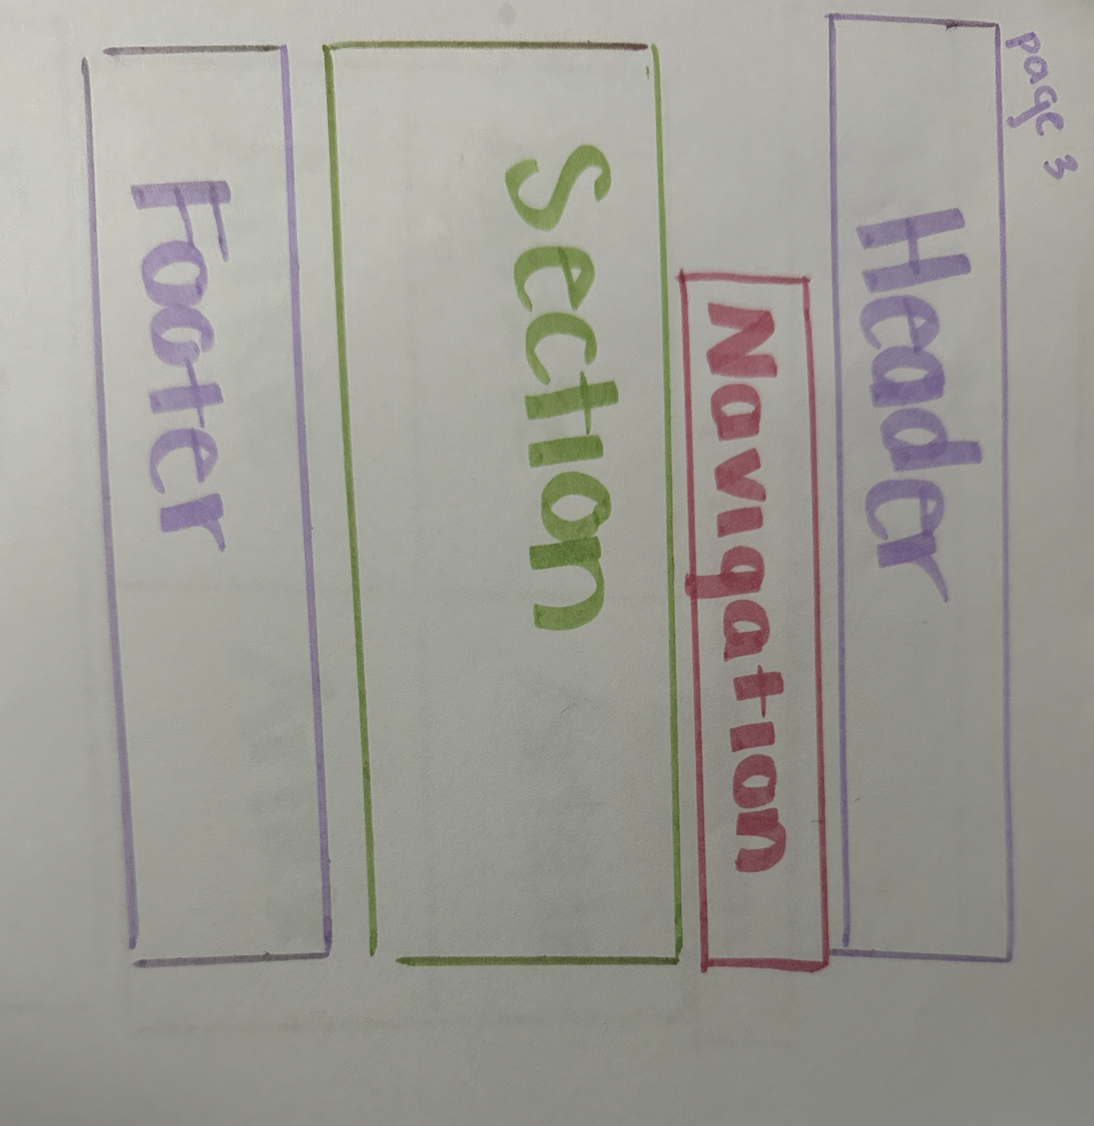 page 3
Header
Navigation
Section
Footer